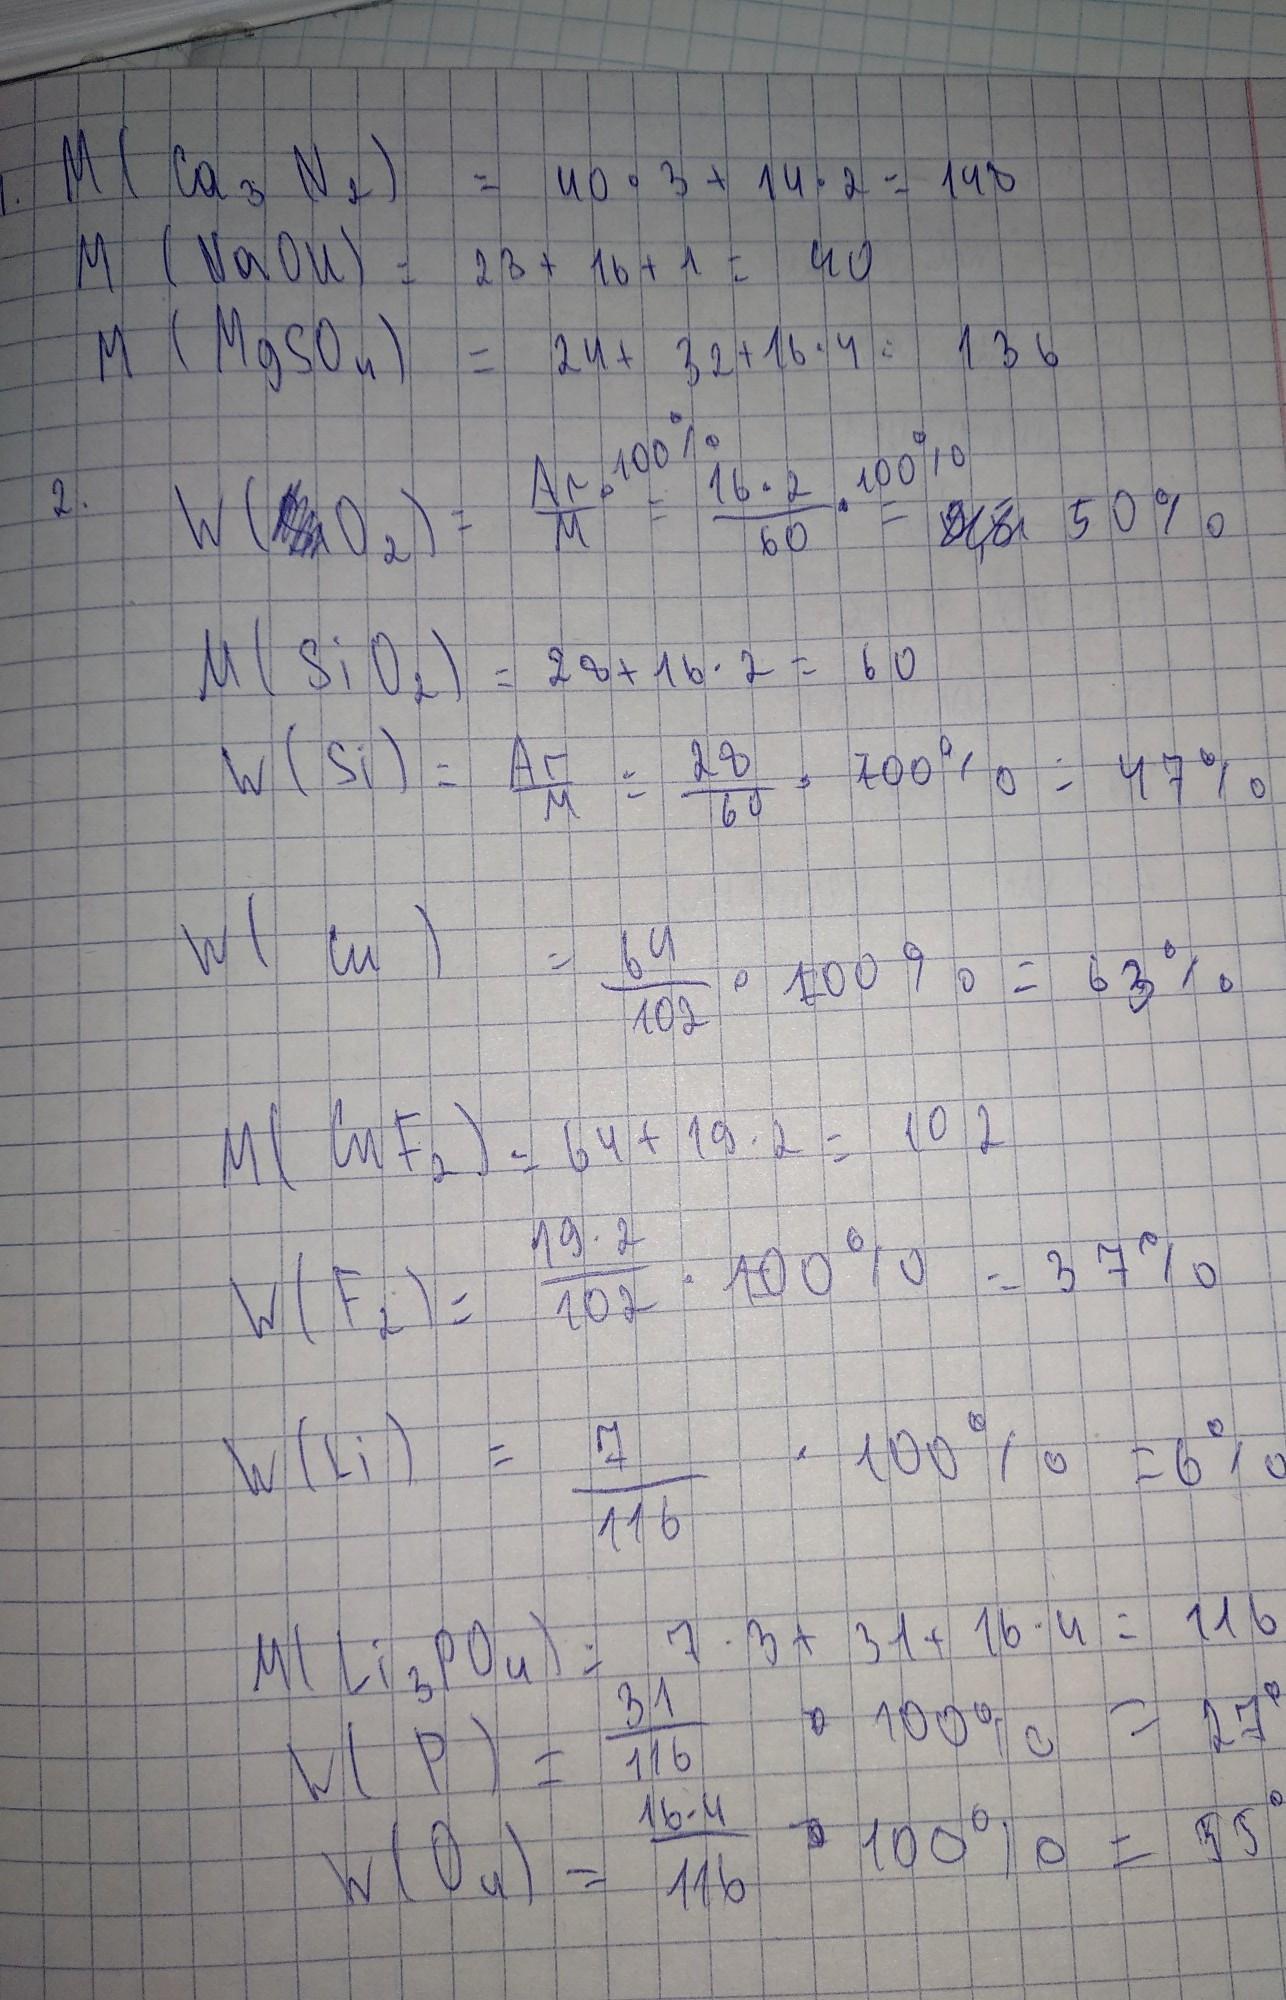 1. M(Ca₃N₂) = 40·3+14·2=148
M(NaOH)= 23+16+1= 40
M(MgSO₄) = 24+32+16·4= 136
2. W(O₂)= Ar/M ·100% = 16·2/60 ·100% = 50%
M(SiO₂)=28+16·2=60
W(Si)= Ar/M = 28/60 · 100% = 47%
W(Cu) = 64/102 · 100% = 63%
M(CuF₂)=64+19·2=102
W(F₂)= 19·2/102 · 100% = 37%
W(Li) = 7/116 · 100% =6%
M(Li₃PO₄)= 7·3+31+16·4=116
W(P) = 31/116 · 100% = 27%
W(O₄) = 16·4/116 · 100% = 55%